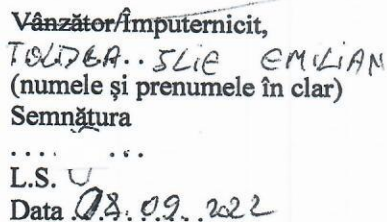 Vânzător/Împuternicit,
TOLDEA.. ILIE EMILIAN
(numele și prenumele în clar)
Semnătura
.... ...
L.S.
Data 08.09.2022